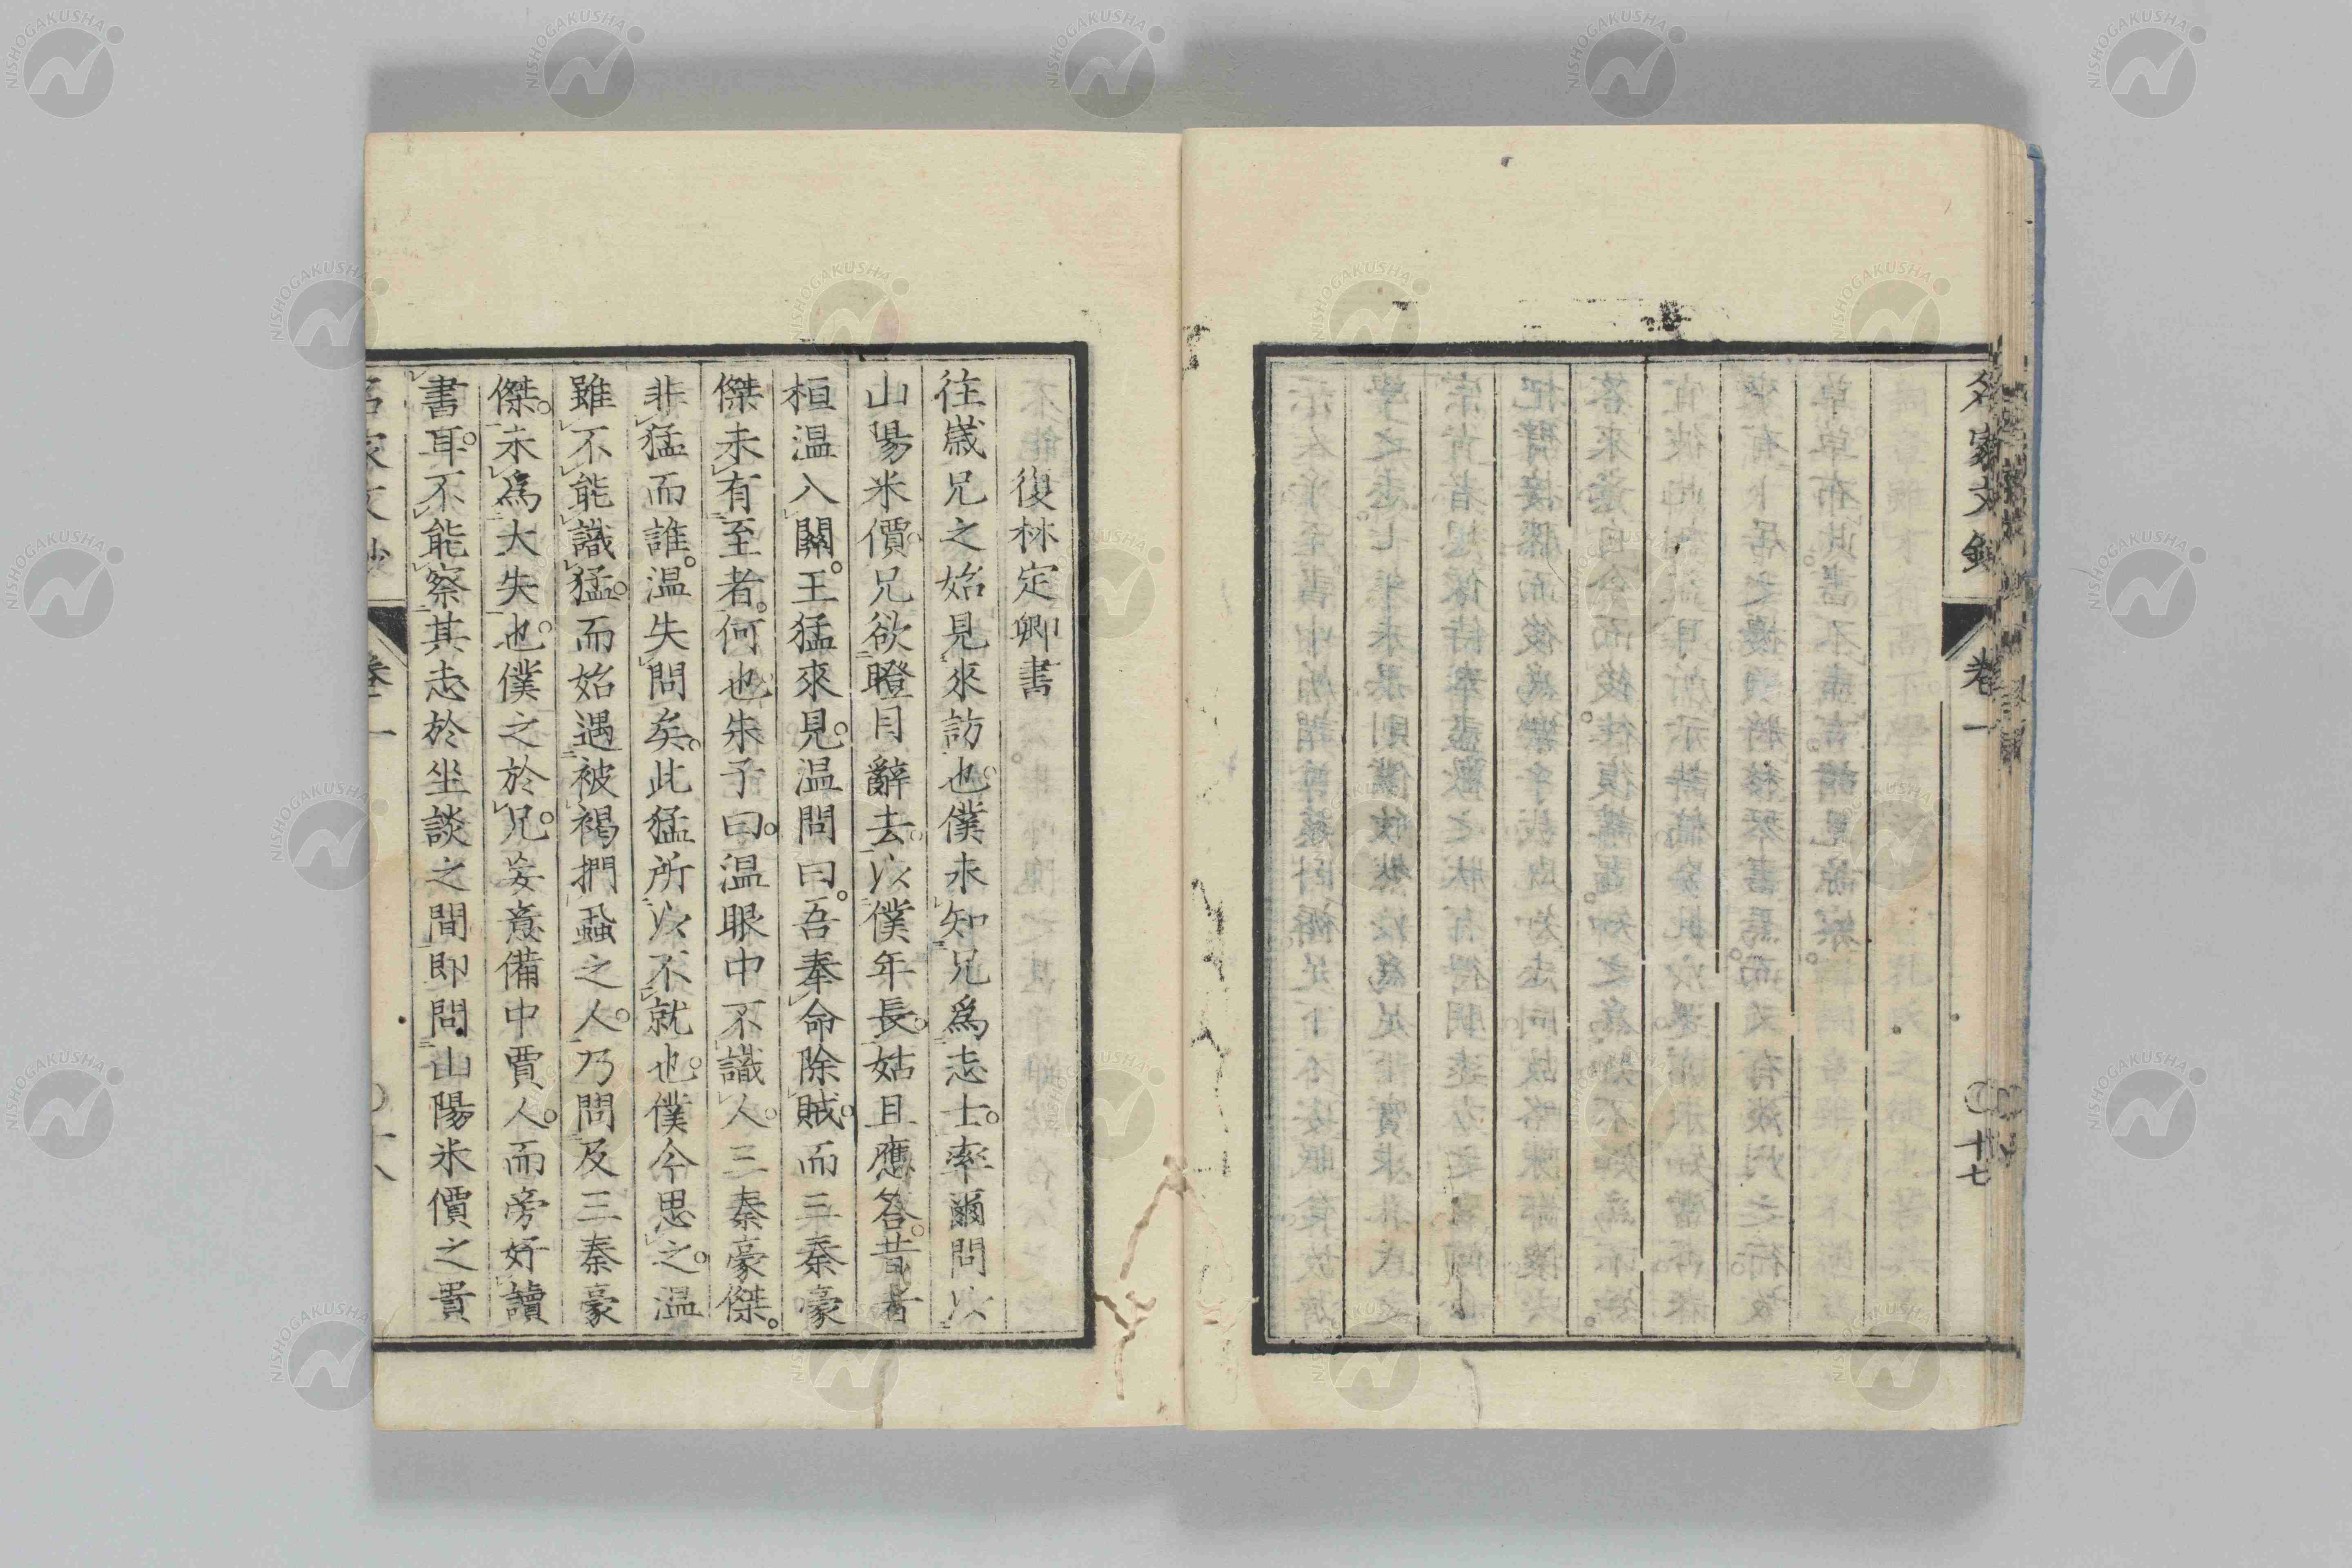 名家文鈔
卷一
十七
復林定卿書
往歲兄之始見來訪也。僕未知兄爲志士。率爾問以
山陽米價。兄欲瞪目辭去。以僕年長。姑且應答。昔者
桓温入關。王猛來見。温問曰。吾奉命除賊。而三秦豪
傑未有至者。何也。朱子曰。温眼中不識人。三秦豪傑。
非猛而誰。温失問矣。此猛所以不就也。僕今思之。温
雖不能識猛。而始遇被褐捫蝨之人。乃問及三秦豪
傑。未爲大失也。僕之於兄。妄意備中賈人。而旁好讀
書耳。不能察其志於坐談之間。即問山陽米價之貴
名家文鈔
卷一
十八
NISHOGAKUSHA